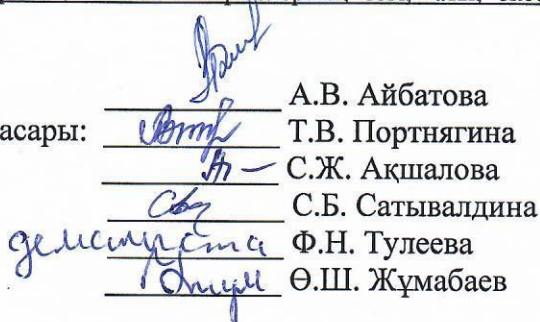 А.В. Айбатова
асары: Т.В. Портнягина
С.Ж. Ақшалова
С.Б. Сатывалдина
демалыста Ф.Н. Тулеева
Ө.Ш. Жұмабаев